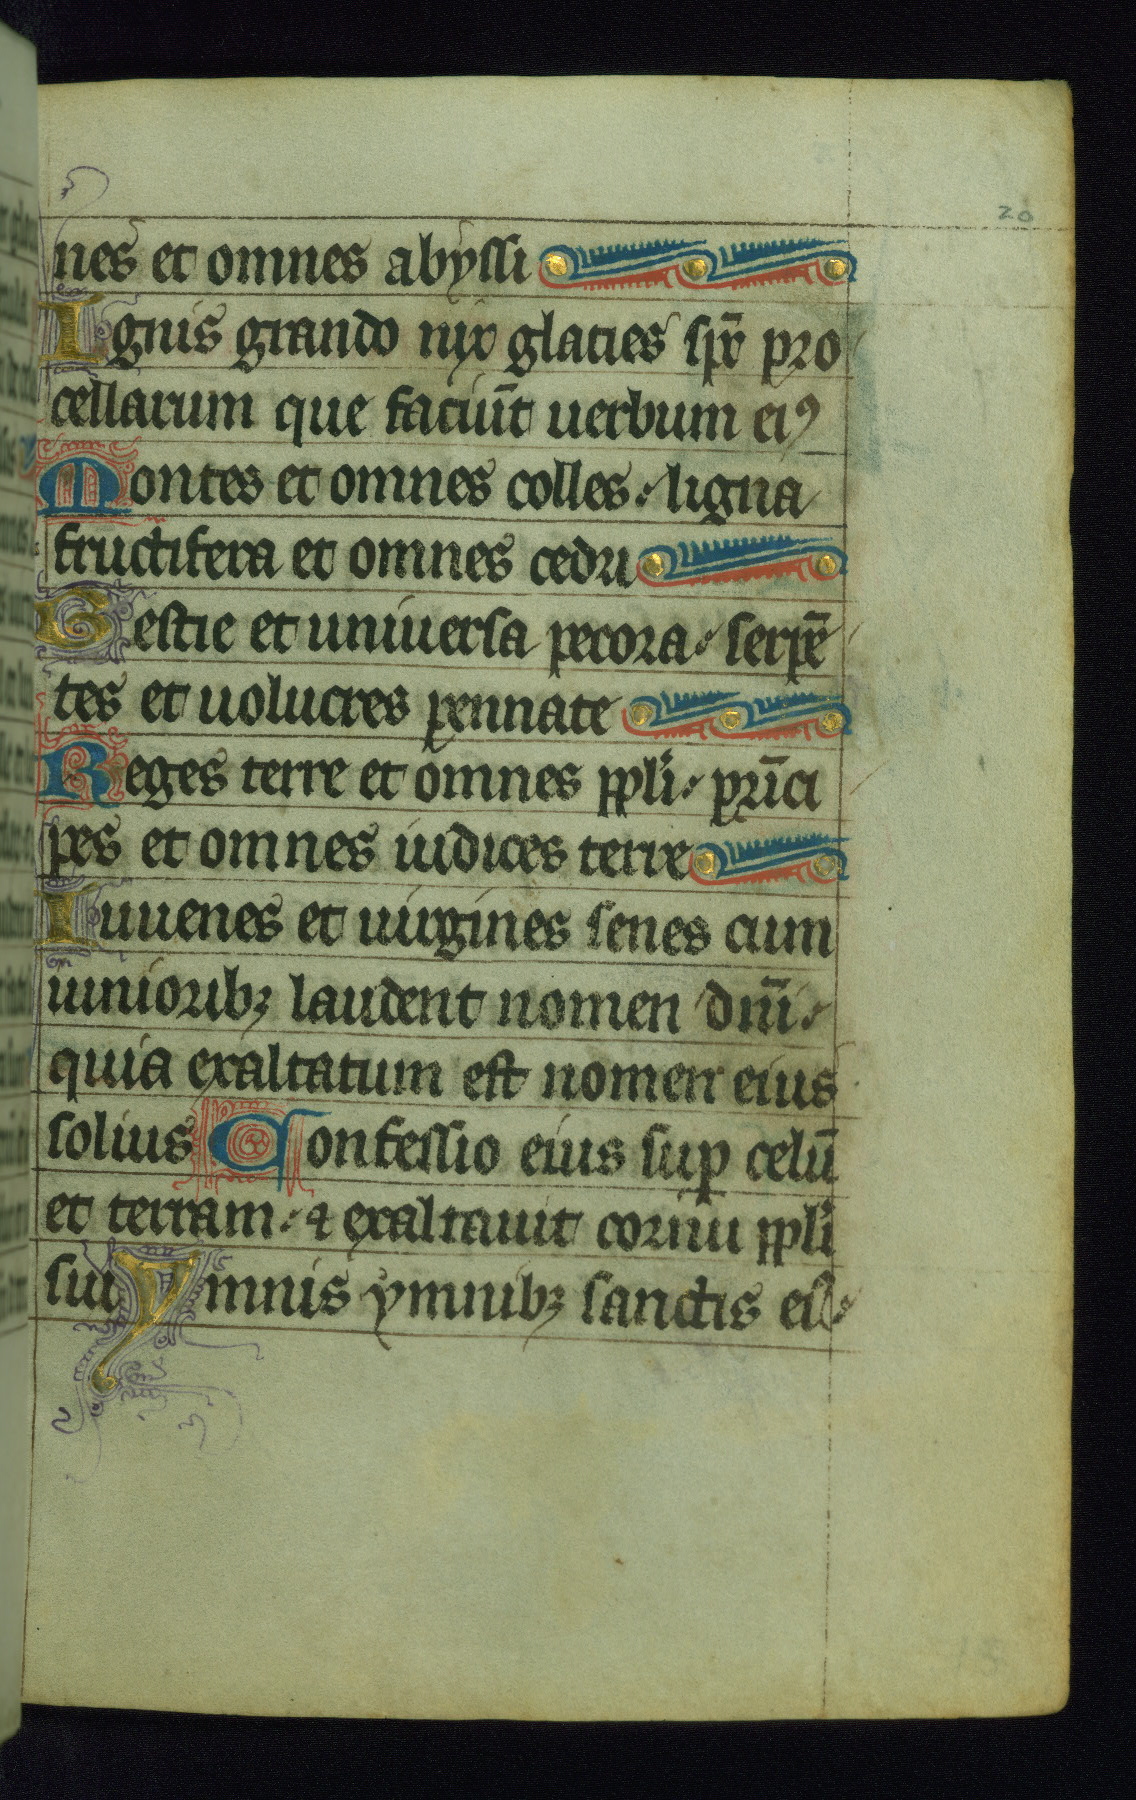 20
nes et omnes abyssi
Ignis grando nix glacies sp̄r pro
cellarum que faciūt uerbum ei⁹
Montes et omnes colles: ligna
fructifera et omnes cedri
Bestie et uniuersa pecora: serpē
tes et uolucres pennate
Reges terre et omnes ppli: prīci
pes et omnes iudices terre
Iuuenes et uirgines senes cum
iunioribꝫ laudent nomen dn̄i:
quia exaltatum est nomen eius
solius Confessio eius suꝑ celū
et terram: ⁊ exaltauit cornu ppli
sui Ymnis ymnibꝫ sanctis ei⁹: